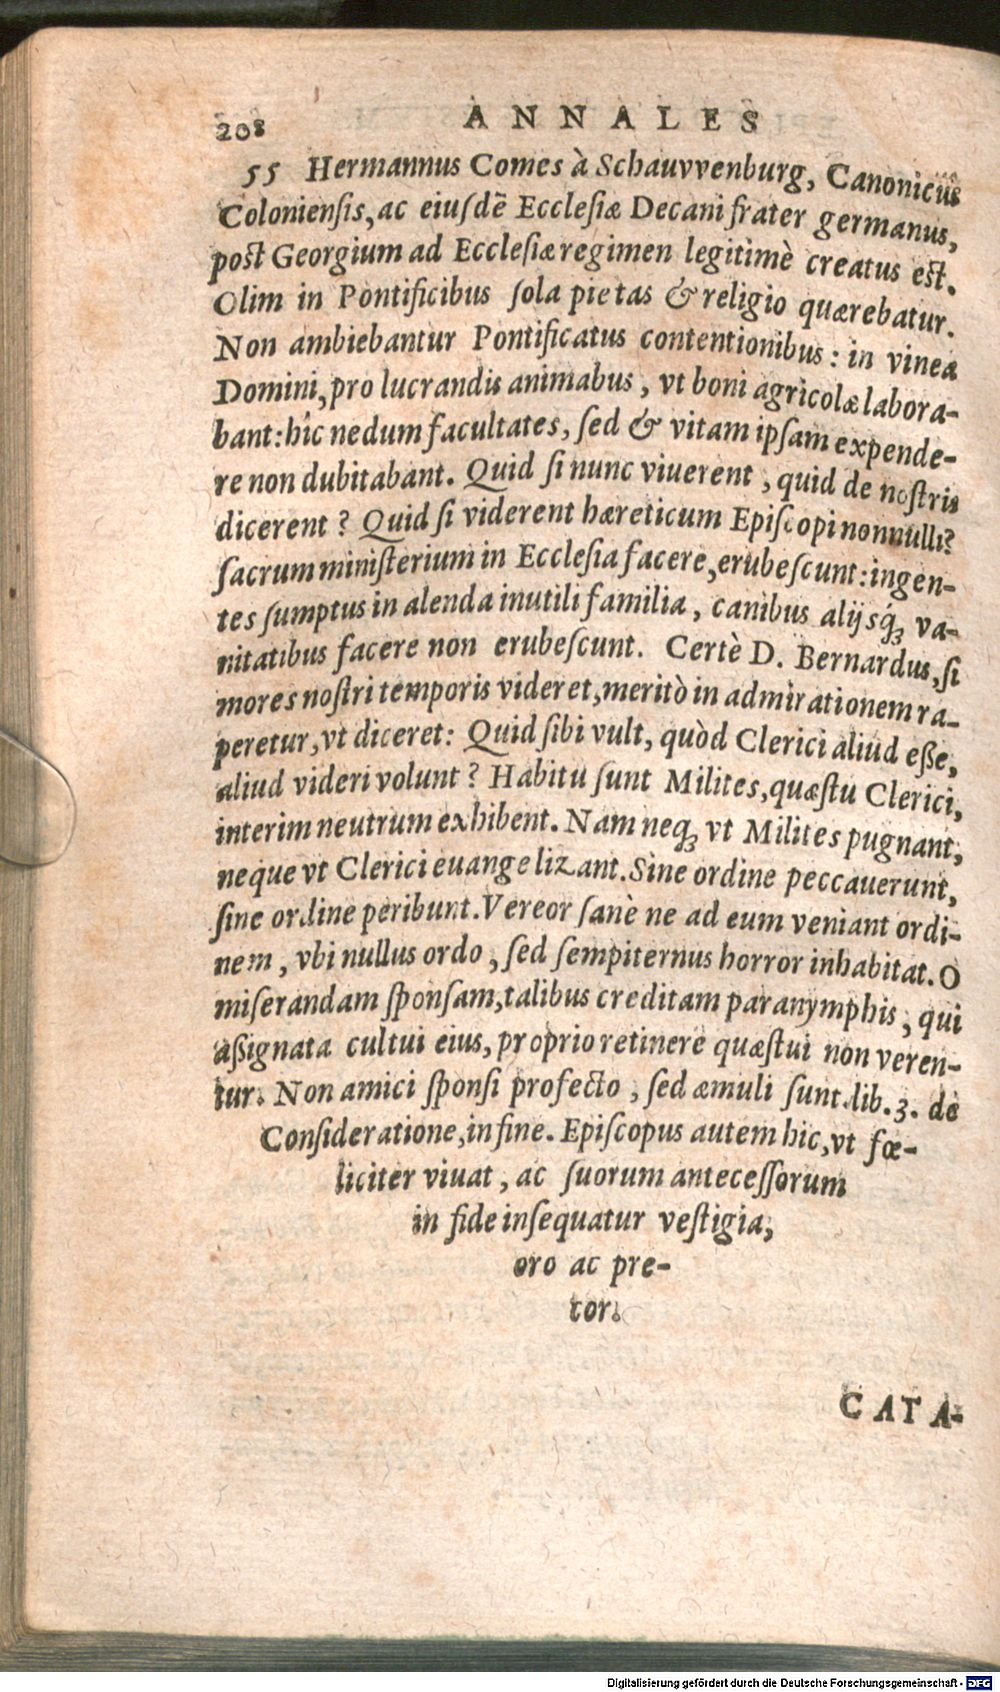 208 ANNALES
55 Hermannus Comes à Schauvvenburg, Canonicus
Coloniensis, ac eiusdē Ecclesiæ Decani frater germanus,
post Georgium ad Ecclesiæ regimen legitimè creatus est.
Olim in Pontificibus sola pietas & religio quærebatur.
Non ambiebantur Pontificatus contentionibus: in vinea
Domini, pro lucrandis animabus, vt boni agricolæ labora-
bant: hîc nedum facultates, sed & vitam ipsam expende-
re non dubitabant. Quid si nunc viuerent, quid de nostris
dicerent? Quid si viderent hæreticum Episcopi nonnulli?
sacrum ministerium in Ecclesia facere, erubescunt: ingen-
tes sumptus in alenda inutili familia, canibus alijsq́ꝫ va-
nitatibus facere non erubescunt. Certè D. Bernardus, si
mores nostri temporis videret, meritò in admirationem ra-
peretur, vt diceret: Quid sibi vult, quòd Clerici aliud eße,
aliud videri volunt? Habitu sunt Milites, quæstu Clerici,
interim neutrum exhibent. Nam neqꝫ vt Milites pugnant,
neque vt Clerici euangelizant. Sine ordine peccauerunt,
sine ordine peribunt. Vereor sanè ne ad eum veniant ordi-
nem, vbi nullus ordo, sed sempiternus horror inhabitat. O
miserandam sponsam, talibus creditam paranymphis, qui
aßignata cultui eius, proprio retinere quæstui non veren-
tur. Non amici sponsi profecto, sed æmuli sunt. lib. 3. de
Consideratione, in fine. Episcopus autem hic, vt fœ-
liciter viuat, ac suorum antecessorum
in fide insequatur vestigia,
oro ac pre-
cor.
CATA-
Digitalisierung gefördert durch die Deutsche Forschungsgemeinschaft - DFG